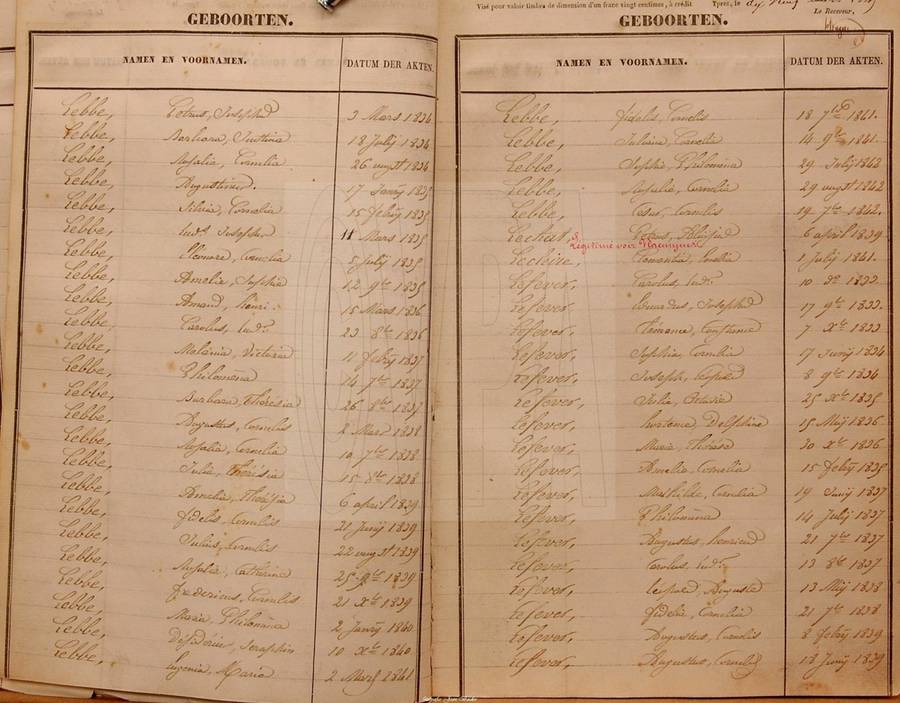 GEBOORTEN.
NAMEN EN VOORNAMEN. DATUM DER AKTEN.
Lebbe, Petrus, Josephus 3 Mars 1834
Lebbe, Barbara, Justina 18 July 1834
Lebbe, Rosalia, Cornelia 26 augst 1834
Lebbe, Augustinus. 17 Janry 1835
Lebbe, Silvia, Cornelia 15 febry 1835
Lebbe, Lud. Josephus 11 Mars 1835
Lebbe, Eleonore, Cornelia 5 July 1835
Lebbe, Amelia, Sophia 12 9bre 1835
Lebbe, Amand, Henri. 15 Mars 1836
Lebbe, Carolus, Lud. 23 8bre 1836
Lebbe, Melania, Victoria 11 febry 1837
Lebbe, Philomena 14 7bre 1837
Lebbe, Barbara, Theresia 26 8bre 1837
Lebbe, Augustus, Cornelis 2 Mars 1838
Lebbe, Rosalia, Cornelia 10 7bre 1838
Lebbe, Julia, Theresia 15 8bre 1838
Lebbe, Amelia, Theresia 6 april 1839
Lebbe, fidelis, Cornelis 21 Junij 1839
Lebbe, Julius, Cornelis 22 augst 1839
Lebbe, Catherine 25 9bre 1839
Lebbe, fredericus, Cornelis 21 Xbre 1839
Lebbe, Maria, Philomena 2 Janry 1840
Lebbe, Desiderius, Seraphin 10 Xbre 1840
Lebbe, Eugenia, Maria 2 Mars 1841
Visé pour valoir timbre de dimension d'un franc vingt centimes, à crédit Ypres, le
Le Receveur,
GEBOORTEN.
NAMEN EN VOORNAMEN. DATUM DER AKTEN.
Lebbe, fidelis, Cornelis 18 7bre 1841.
Lebbe, Juliana, Cornelia 14 9bre 1841.
Lebbe, Sophia, Philomena 29 July 1842
Lebbe, Rosalia, Cornelia 29 augst 1842
Lebbe, Cesar, Cornelis 19 7bre 1842.
Lechat, Petrus, 6 april 1839
Legitimé voir
Leclijse, Clementia, Amelia 1 July 1841.
Lefever, Carolus, Lud. 10 1833
Lefever, Eduardus, Josephus 17 9bre 1833.
Lefever, Constantia 7 Xbre 1833
Lefever, Sophia, Cornelia 17 Junij 1834
Lefever, Joseph, Leopold 8 9bre 1834
Lefever, Julia, 25 Xbre 1835
Lefever, hortence, Delphine 15 Meij 1836
Lefever, Maria, Therese 30 Xbre 1836
Lefever, Amelia, Cornelia 15 febry
Lefever, Mathilde, Cornelia 19 Junij 1837
Lefever, Philomena 14 July 1837
Lefever, Augustus, henricus 21 7bre 1837
Lefever, Carolus, Lud. 13 8bre 1837
Lefever, Leopold, Auguste 13 Meij 1838
Lefever, fidelia, Cornelia 21 7bre 1838
Lefever, Augustus, Cornelis 8 febry 1839
Lefever, Augustus, Cornelis 18 Junij 1839